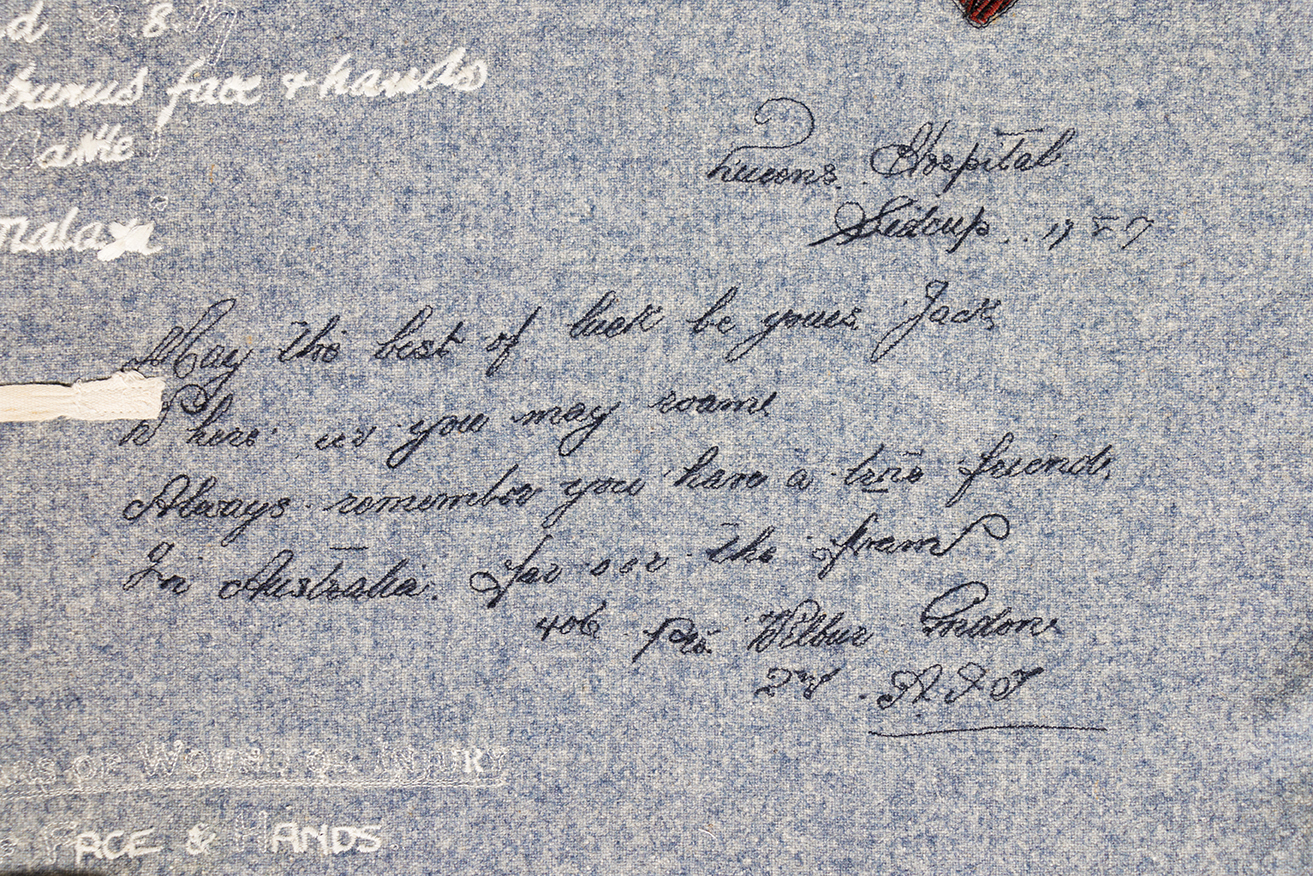 8.
burns face & hands
Battle
Malaya
Queens Hospital
Sidcup.
May the best of luck be yours Jack
Where ere you may roam
Always remember you have a true friend,
In Australia. Far oer the foam
406 Pte. Wilbur
A.I.F
OF WOUND OR INJURY
FACE & HANDS